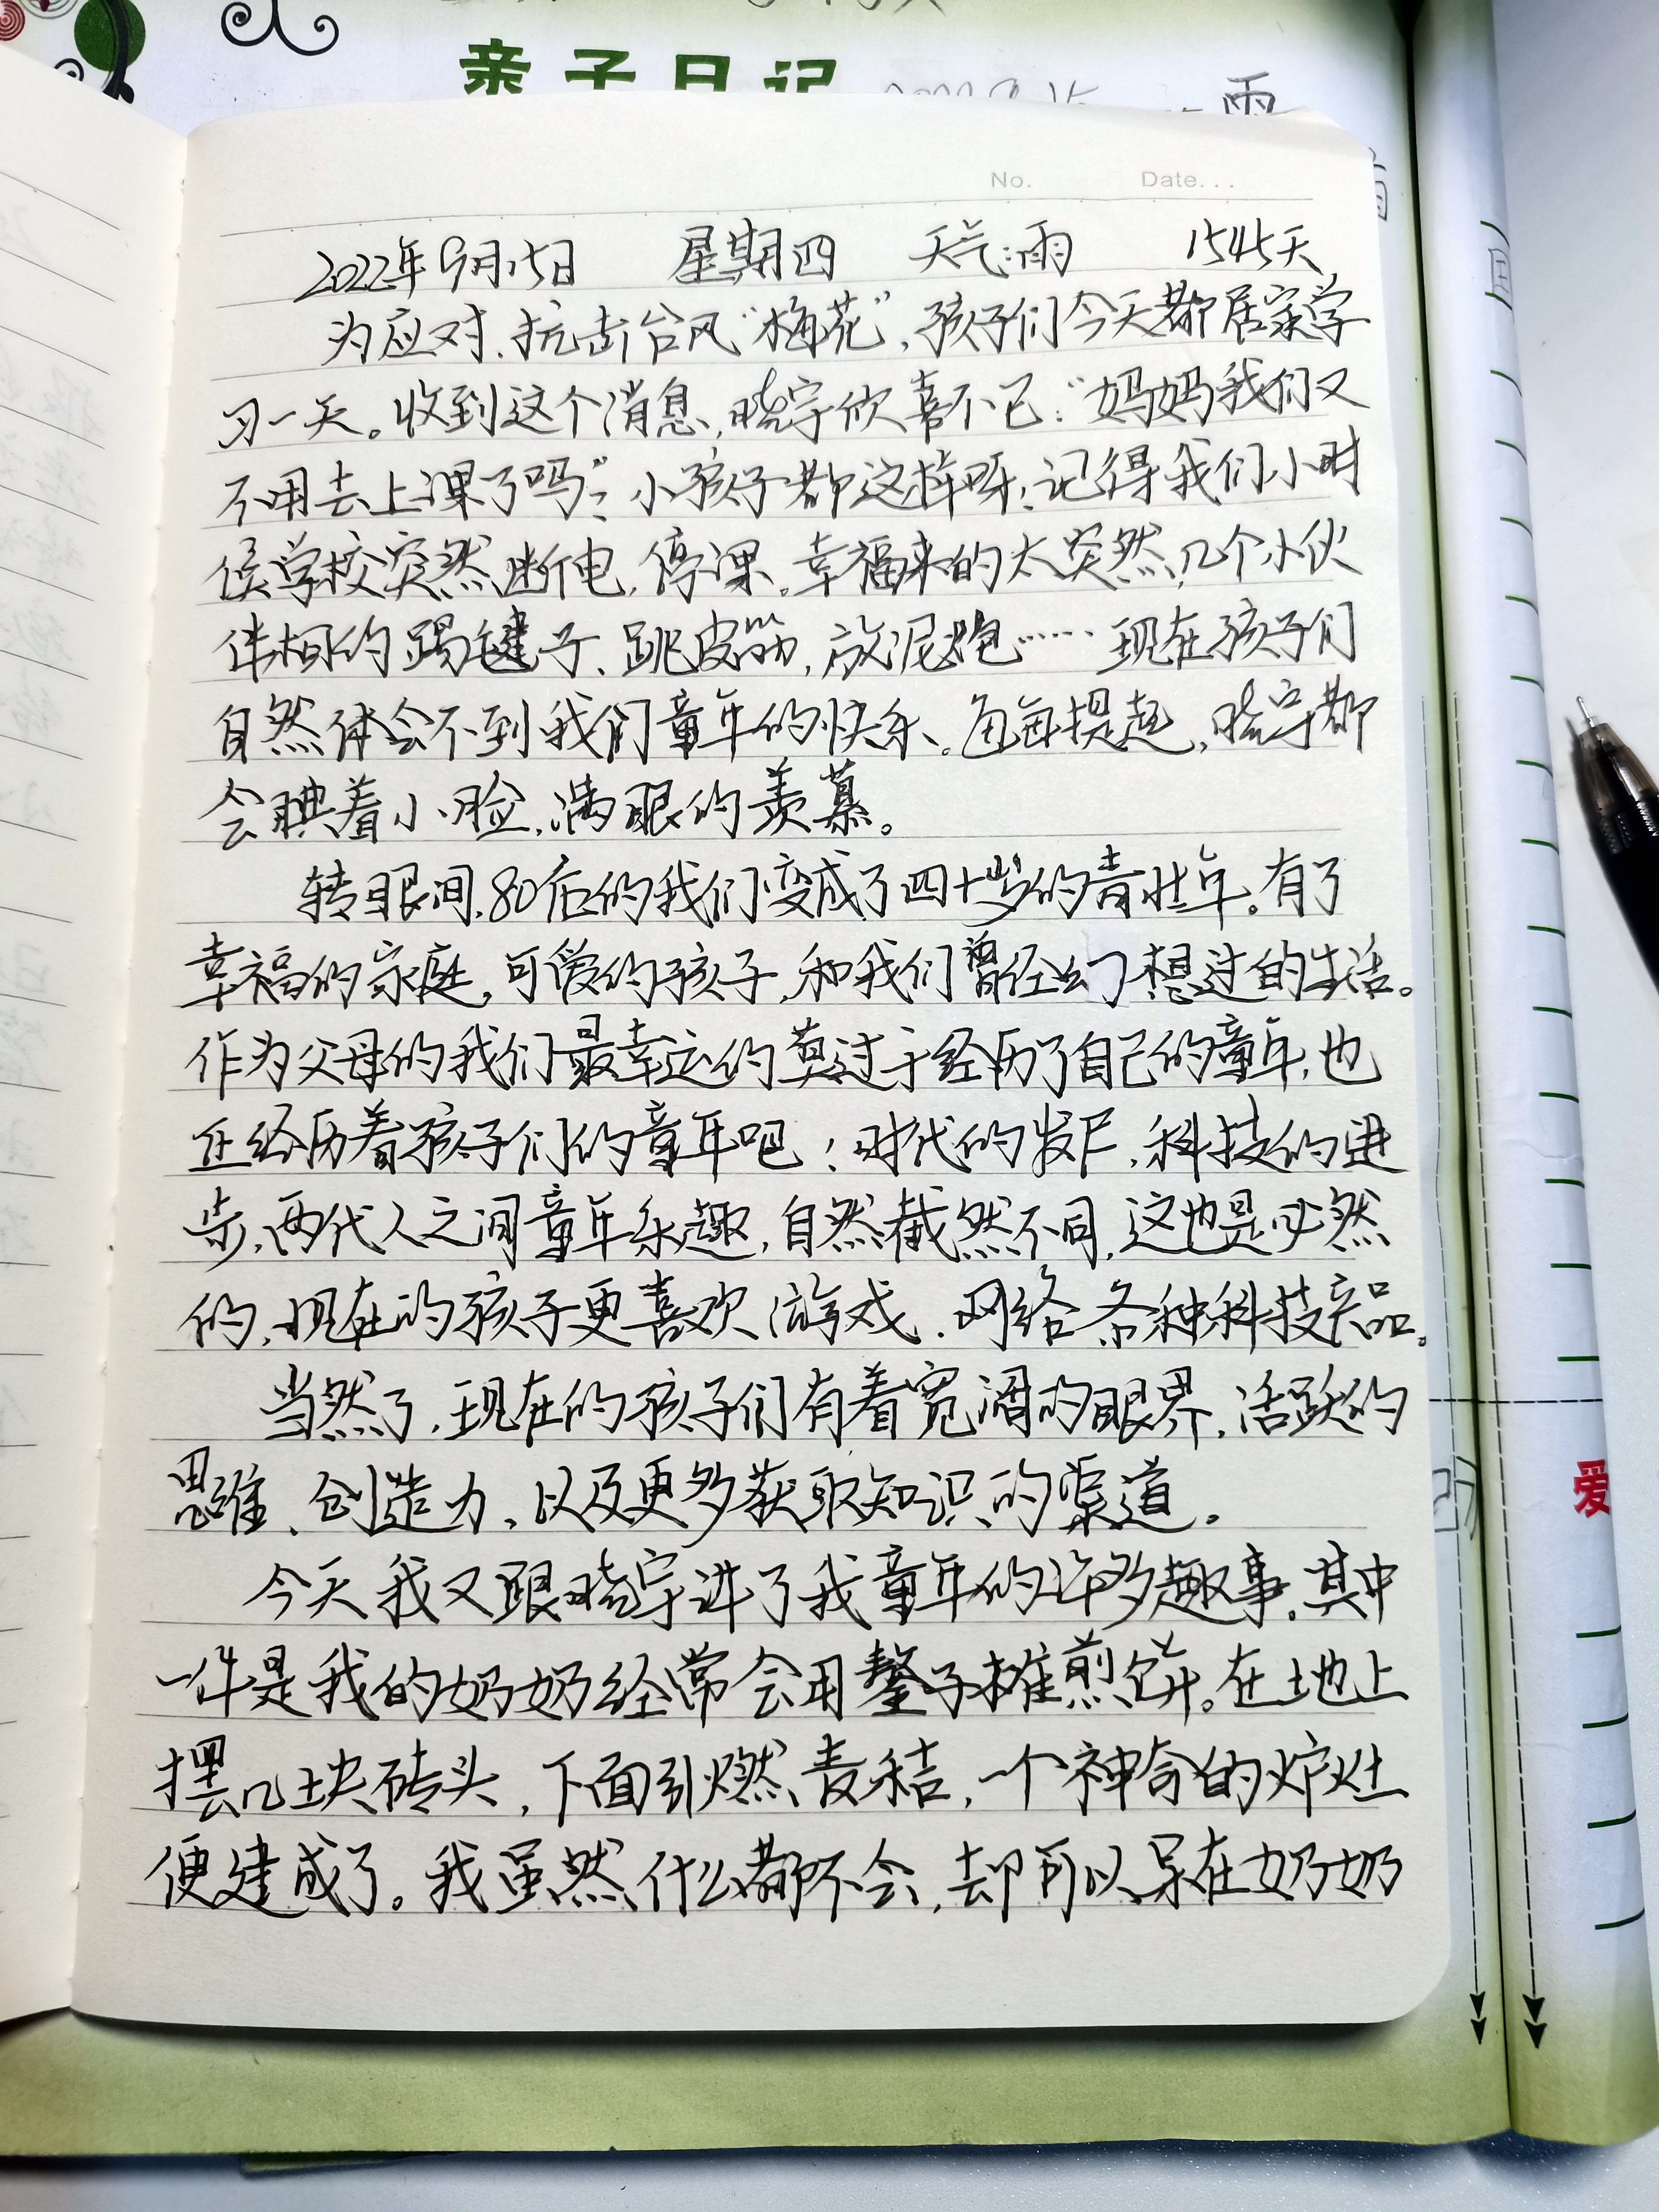 亲子日记
雨
No. Date...
2022年9月15日 星期四 天气:雨 1545天
为应对、抗击台风“梅花”,孩子们今天都居家学
习一天。收到这个消息,晓宇欣喜不已:“妈妈我们又
不用去上课了吗”?小孩子都这样呀!记得我们小时
候学校突然断电,停课。幸福来的太突然,几个小伙
伴相约踢毽子、跳皮筋,放泥炮……现在孩子们
自然体会不到我们童年的快乐。每每提起,晓宇都
会腆着小脸,满眼的羡慕。
转眼间,80后的我们变成了四十岁的青壮年。有了
幸福的家庭,可爱的孩子,和我们曾经幻想过的生活。
作为父母的我们最幸运的莫过于经历了自己的童年,也
正经历着孩子们的童年吧!时代的发展,科技的进
步,两代人之间童年乐趣,自然截然不同,这也是必然
的,现在的孩子更喜欢游戏、网络各种科技产品。
当然了,现在的孩子们有着宽阔的眼界,活跃的
思维、创造力,以及更多获取知识的渠道。
今天我又跟晓宇讲了我童年的许多趣事。其中
一件是我的奶奶经常会用鏊子摊煎饼。在地上
摆几块砖头,下面引燃麦秸,一个神奇的炉灶
便建成了。我虽然什么都不会,却可以呆在奶奶
爱